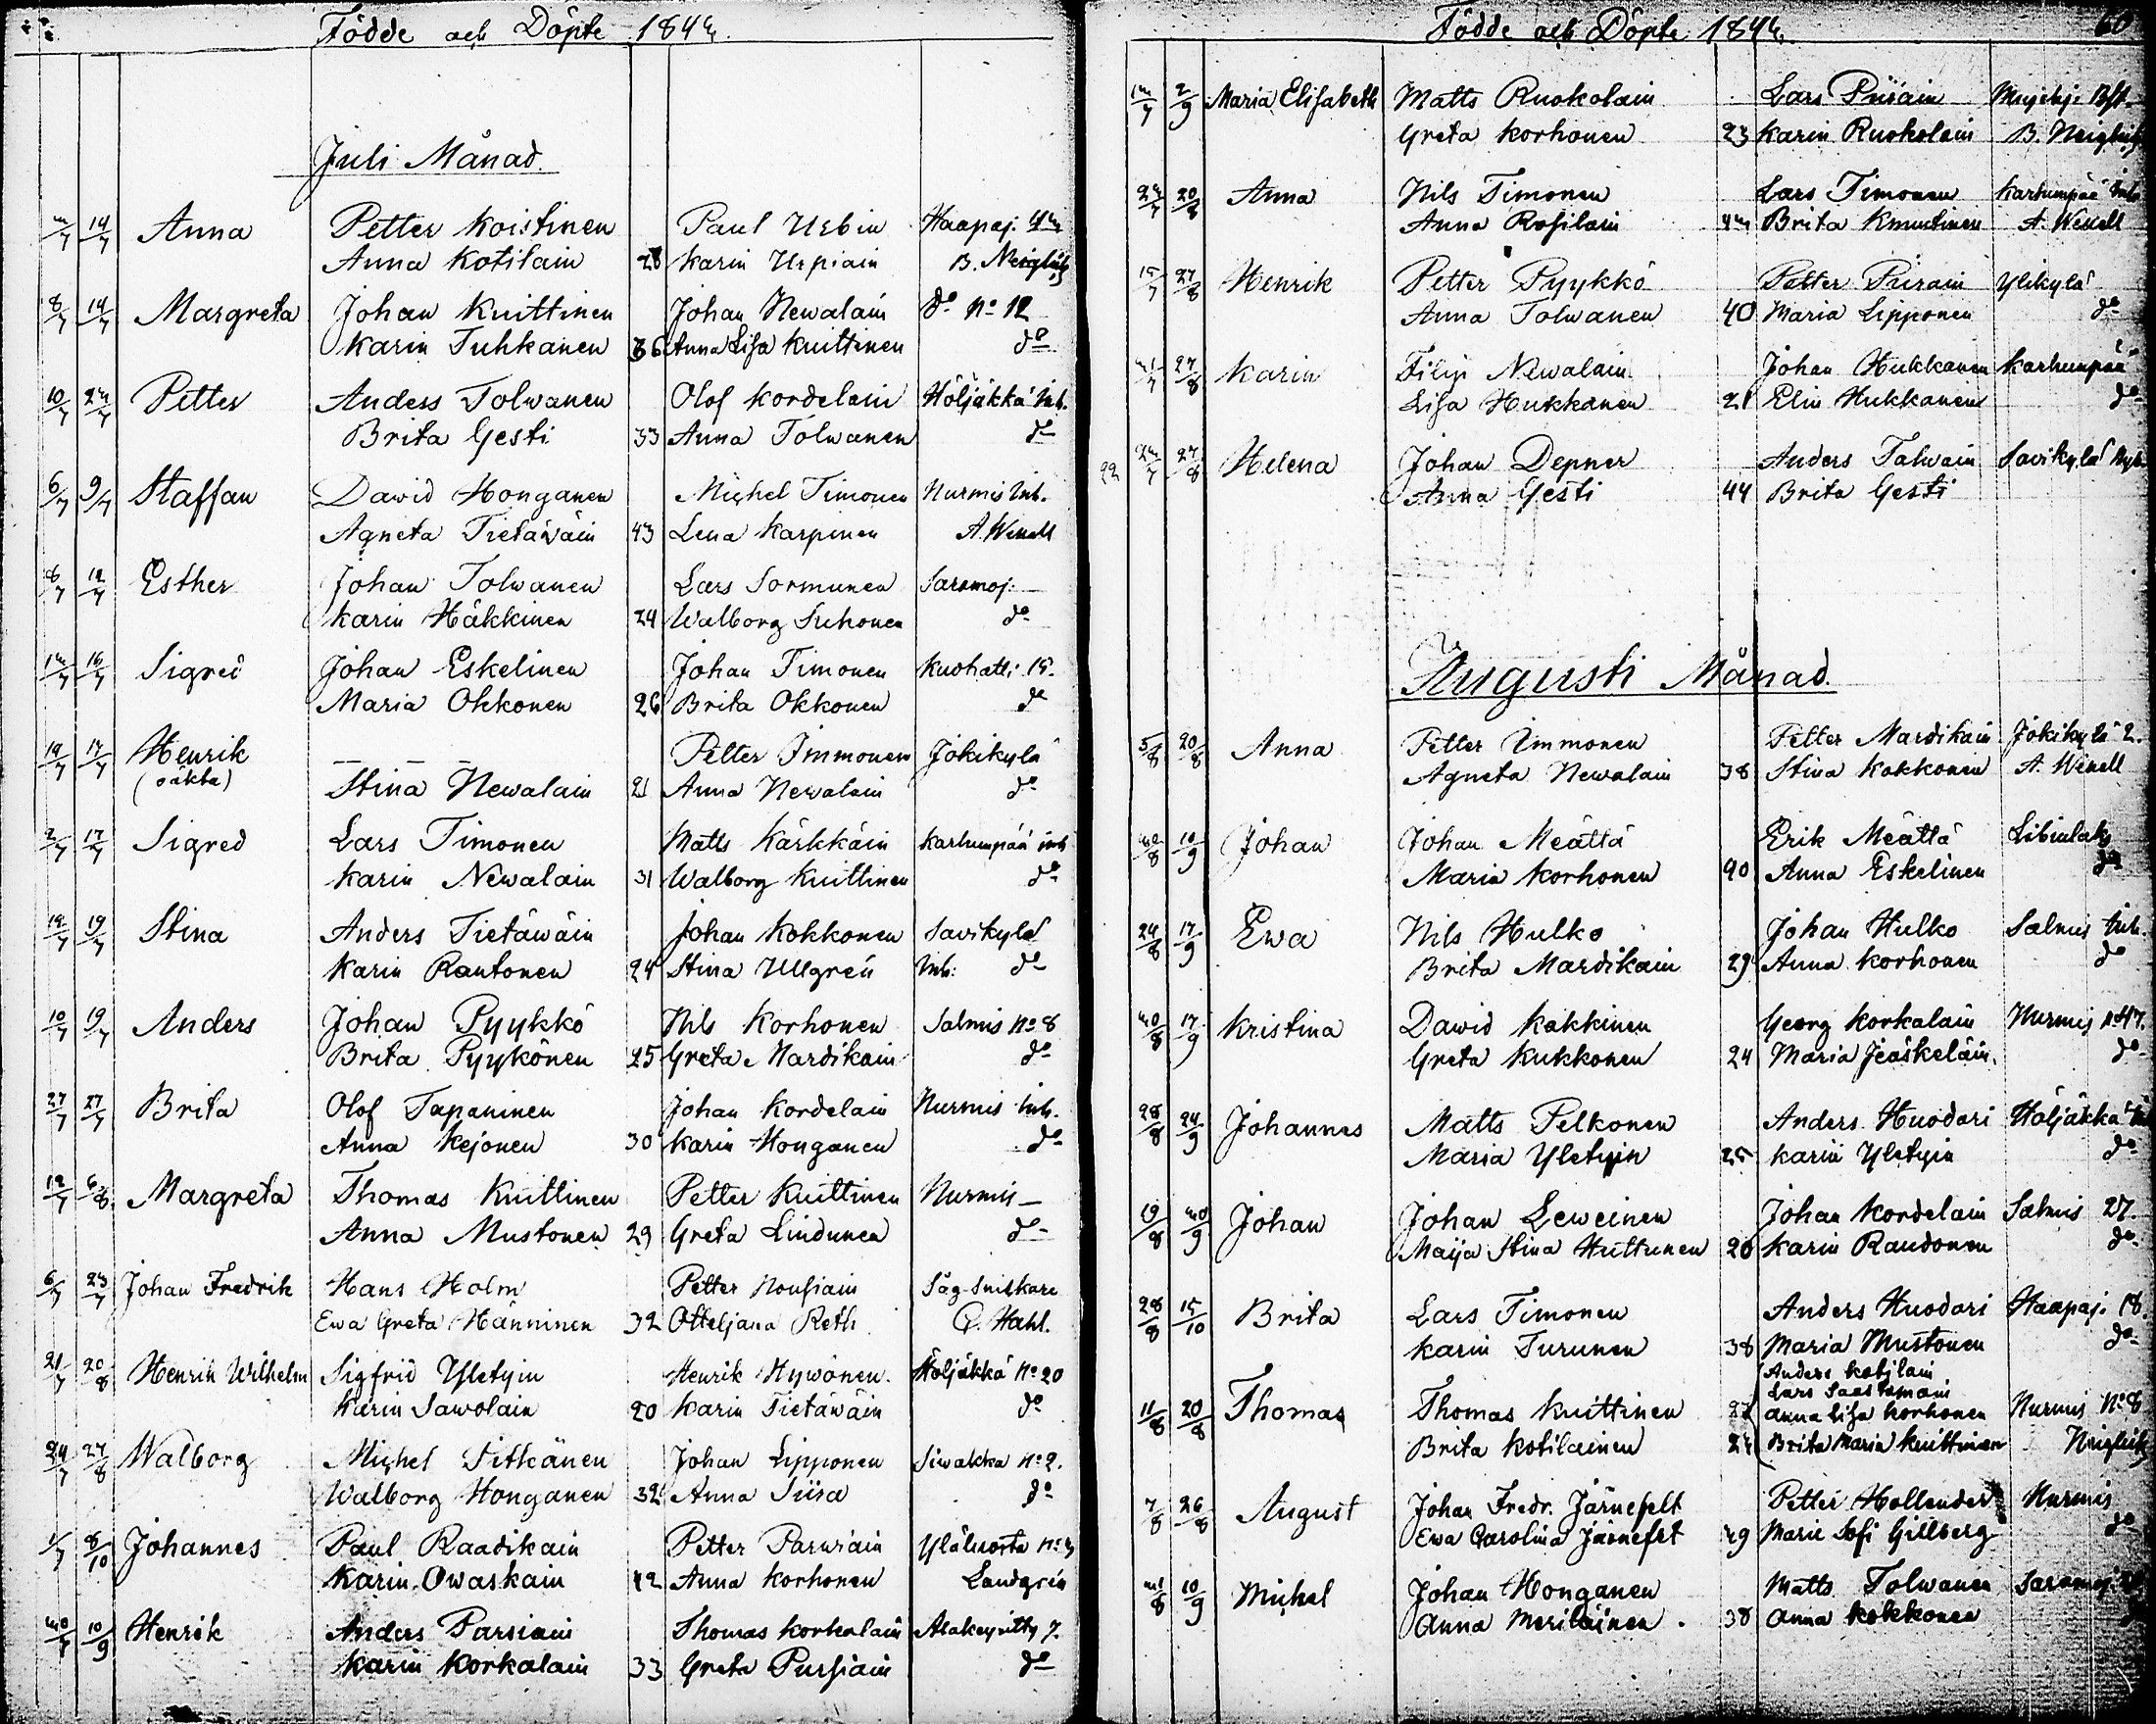 Födde och Döpte 1844.
Juli Månad.
14/7 Anna Petter Koistinen Paul Urbin Haapaj.
Anna Kotilain 28 Karin Urpiain B. Neiglick
8/7 14/7 Margreta Johan Kuittinen Johan Newalain do No 12
Karin Tuhkanen 36 Anna Lisa Kuittinen do
10/7 Petter Anders Tolwanen Olof Kordelain Höljäkkä Inh.
Brita Gesti 33 Anna Tolwanen do
6/7 9/7 Staffan Dawid Honganen Michel Timonen Nurmis Inh.
Agneta Tietäväin 43 Lena Karpinen A. Wenell
8/7 12/7 Esther Johan Tolwanen Lars Sormunen Saramoj.
Karin Häkkinen 24 Walborg Suhonen do
16/7 Sigred Johan Eskelinen Johan Timonen Kuohatti 15.
Maria Okkonen 26 Brita Okkonen do
17/7 Henrik — — — Petter Immonen Jokikylä
(oäkta) Stina Newalain 21 Anna Newalain do
2/7 17/7 Sigred Lars Timonen Matts Kärkkäin Karhunpää inh
Karin Newalain 31 Walborg Kuittinen do
19/7 Stina Anders Tietäwäin Johan Kokkonen Savikylä
Karin Rautonen 24 Stina Ullgrén Inh: do
10/7 19/7 Anders Johan Pyykkö Nils Korhonen Salmis No 8
Brita Pyykönen 25 Greta Mardikain do
27/7 27/7 Brita Olof Tapaninen Johan Kordelain Nurmis Inh.
Anna Kejonen 30 Karin Honganen do
12/7 6/8 Margreta Thomas Kuittinen Petter Kuittinen Nurmis —
Anna Mustonen 29 Greta Lindunen do
6/7 23/7 Johan Fredrik Hans Holm Petter Nousiain Såg-Snickare
Ewa Greta Hänninen 32 Otteljana Reth C. Hahl.
21/7 20/8 Henrik Wilhelm Sigfrid Yletyin Henrik Hywönen Höljäkkä No 20
Karin Sawolain 20 Karin Tietäwäin do
24/7 27/8 Walborg Michel Pitkänen Johan Lipponen Siwakka No 2.
Walborg Honganen 32 Anna Siira do
1/7 8/10 Johannes Paul Raadikain Petter Parwiain
Karin Owaskain 42 Anna Korhonen Landgrén
10/9 Henrik Anders Parsiain Thomas Korkalain Alakeyritty 7.
Karin Korkalain 33 Greta Pursiain do
Födde och Döpte 1844. 60
2/9 Maria Elisabeth Matts Ruokolain Lars Piirain
Greta Korhonen 23 Karin Ruokolain B. Neiglick
20/8 Anna Nils Timonen Lars Timonen Karhunpää Inh.
Anna Rosilain Brita Knuutinen A. Wenell
15/7 27/8 Henrik Petter Pyykkö Petter Piirain Ylikylä
Anna Tolwanen 40 Maria Lipponen do
27/8 Karin Filip Newalain Johan Hukkanen Karhunpää
Lisa Hukkanen 21 Elin Hukkanen do
22 27/8 Helena Johan Depner Anders Talwain Savikylä
Anna Gesti 44 Brita Gesti
Augusti Månad.
5/8 20/8 Anna Petter Immonen Petter Mardikain Jokikylä 2.
Agneta Newalain 38 Stina Kokkonen A. Wenell
10/9 Johan Johan Määttä Erik Määttä Libinlaks
Maria Korhonen Anna Eskelinen do
24/8 17/9 Ewa Nils Hulko Johan Hulko Salmis Inh.
Brita Mardikain 29 Anna Korhonen do
17/9 Kristina Dawid Kakkinen Georg Korkalain Nurmis No 47.
Greta Kukkonen 24 Maria Jeäskeläin. do
28/8 24/9 Johannes Matts Pelkonen Anders Huodari Höljäkkä
Maria Yletyin 25 Karin Yletyin do
19/8 Johan Johan Leweinen Johan Kordelain Salmis 27.
Maija Stina Huttunen 20 Karin Raudonen do
28/8 15/10 Brita Lars Timonen Anders Huodari Haapaj. 18.
Karin Turunen 38 Maria Mustonen do
Anders Kotilain
Lars Saastamoin
11/8 20/8 Thomas Thomas Kuittinen 27 Anna Lisa Korhonen Nurmis No 8
Brita Kotilainen 24 Brita Maria Kuittinen Neiglick
7/8 26/8 August Johan Fredr. Järnefelt Petter Hollender Nurmis
Ewa Carolina Järnefelt 29 Marie Sofi Gillberg do
10/9 Michel Johan Honganen Matts Tolwanen Saramoj.
Anna Meriläinen. 38 Anna Kokkonen